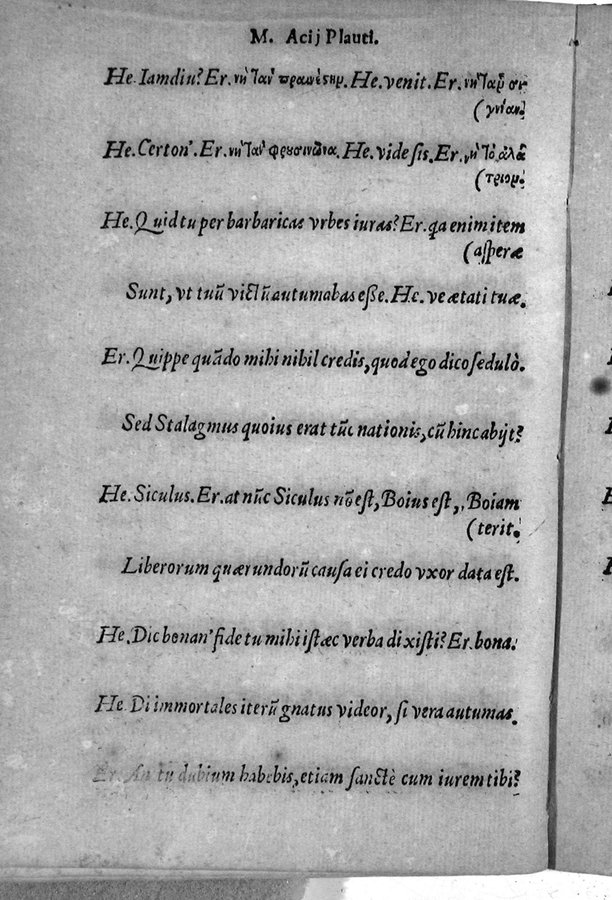 M. Acij Plauti.
He. Iamdiu? Er. νὴ Ταν πραινέστην. He. venit. Er. νὴ Ταν σι-
(γνίαν.
He. Certon'. Er. νὴ Ταν φρουσινῶνα. He. vide sis. Er. νὴ Τὸ ἀλα
(τριομ.
He. Quid tu per barbaricas vrbes iuras? Er. qa enim item
(asperæ
Sunt, vt tuũ victũ autumabas esse. He. ve ætati tuæ.
Er. Quippe quãdo mihi nihil credis, quod ego dico sedulò.
Sed Stalagmus quoius erat tũc nationis, cũ hinc abijt?
He. Siculus. Er. at nũc Siculus nõ est, Boius est,, Boiam
(terit.
Liberorum quærundorũ causa ei credo vxor data est.
He. Dic bonan' fide tu mihi istæc verba dixisti? Er. bona.
He. Di immortales iterũ gnatus videor, si vera autumas.
Er. An tu dubium habebis, etiam sanctè cum iurem tibi?